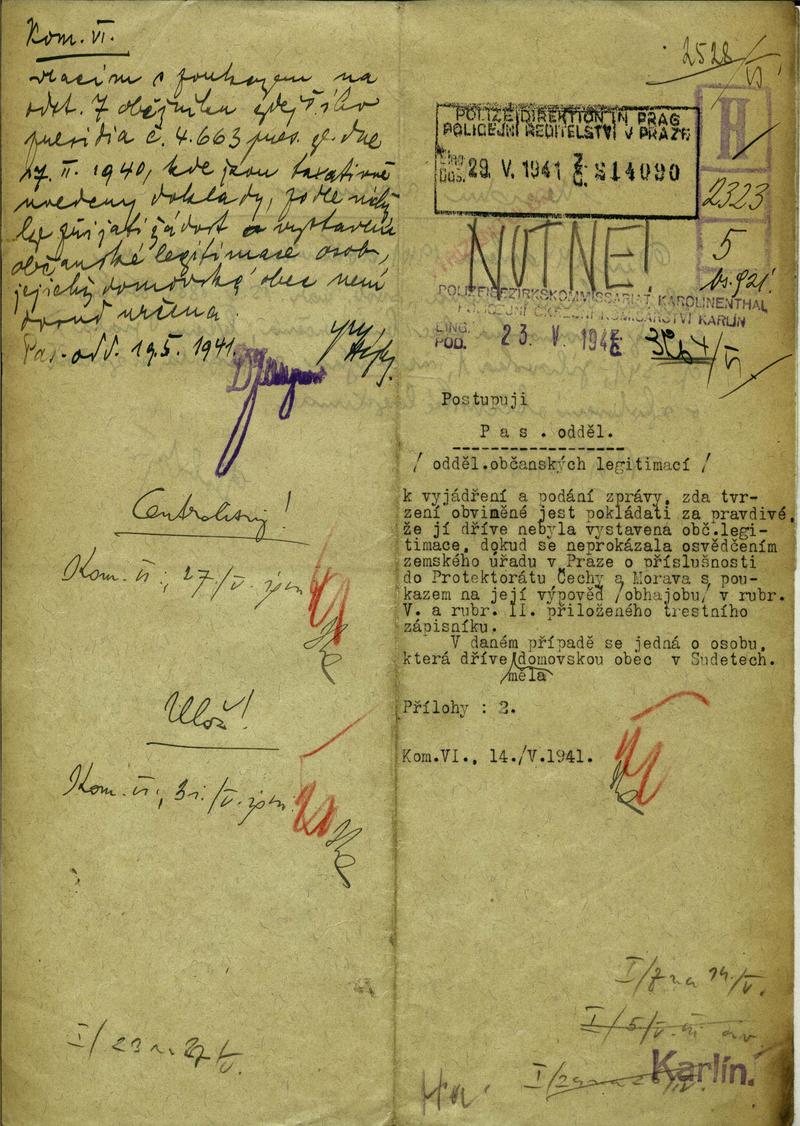 Kom. VI.
vracím s poukazem na
odst. 7 oběžníku zdejšího
presidia č. 4.663 pres. ze dne
17. II. 1940, kde jsou taxativně
uvedeny doklady, podle nichž
lze přijati žádost o vystavení
občanské legitimace osob,
jejichž domovská obec není
určena.
Pas. odd. 19.5. 1941.
Kom. VI., 27/V.
Ulož!
Kom. VI., 31./V.
2528/VI
POLIZEIDIREKTION IN PRAG
POLICEJNÍ ŘEDITELSTVÍ V PRAZE
29. V. 1941 814090
H
2323
5
NUTNÉ!
POLIZEIBEZIRKSKOMMISSARIAT KAROLINENTHAL
POLICEJNÍ OKRESNÍ KOMISAŘSTVÍ KARLÍN
EING.
POD. 23. V. 194
Postupuji
Pas. odděl.
/ odděl.občanských legitimací /
k vyjádření a podání zprávy, zda tvr-
zení obviněné jest pokládati za pravdivé,
že jí dříve nebyla vystavena obč.legi-
timace, dokud se neprokázala osvědčením
zemského úřadu v Praze o příslušnosti
do Protektorátu Čechy a Morava s pou-
kazem na její výpověď /obhajobu/ v rubr.
V. a rubr. II. přiloženého trestního
zápisníku.
V daném případě se jedná o osobu,
která dříve/domovskou obec v Sudetech.
/měla
Přílohy : 2.
Kom.VI., 14./V.1941.
Karlín.